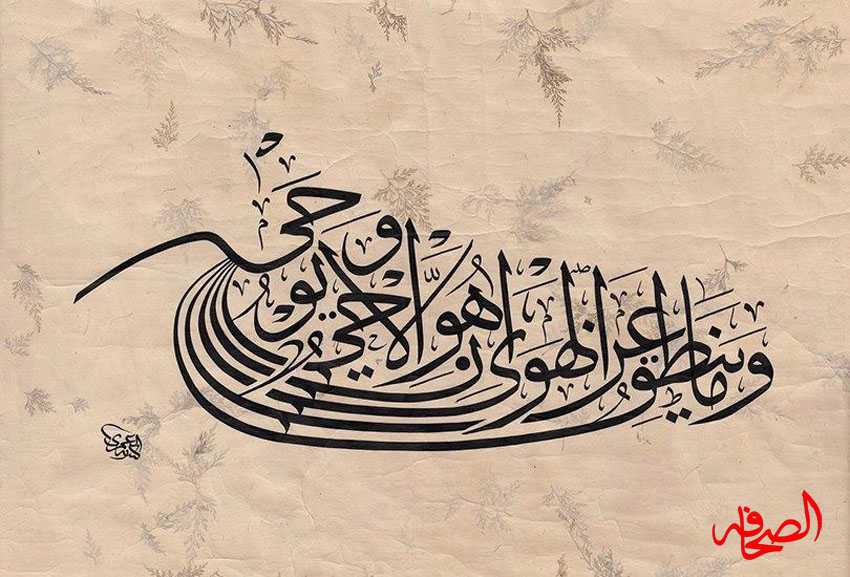 وما ينطق عن الهوى إن هو إلا وحي يوحى
الصحافة